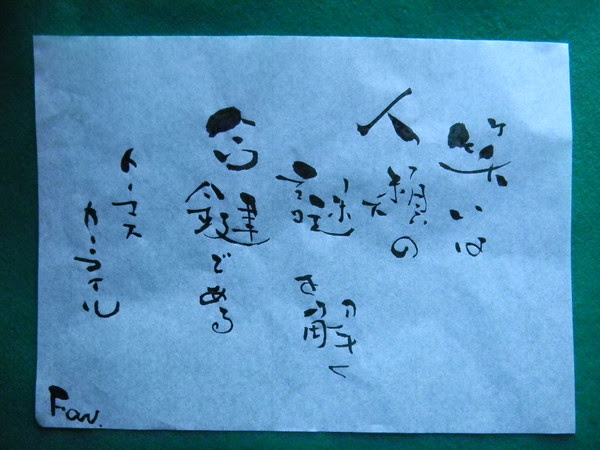 笑いは
人類の
謎を解く
合鍵である
トーマス
カーライル
Fav.